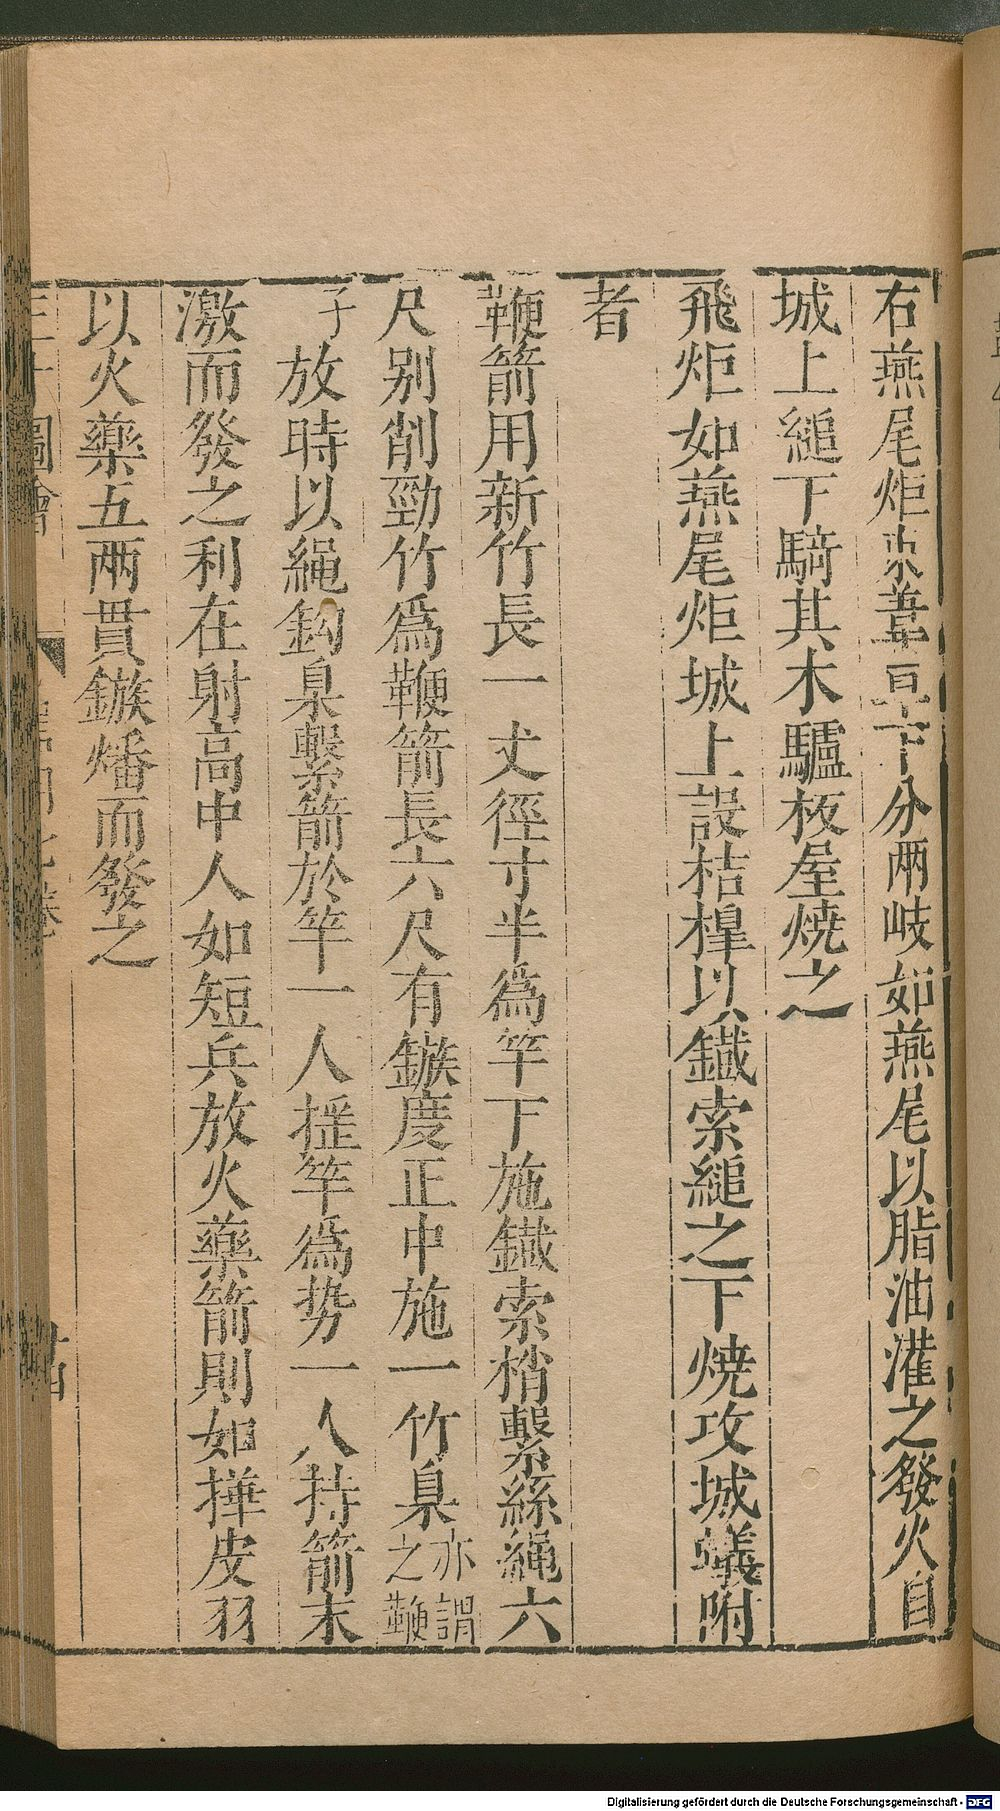 右燕尾炬束葦草下分兩岐如燕尾以脂油灌之發火自
城上縋下騎其木驢板屋燒之
飛炬如燕尾炬城上設桔槹以鐵索縋之下燒攻城蟻附
者
鞭箭用新竹長一丈徑寸半為竿下施鐵索梢繫絲繩六
尺别削勁竹為鞭箭長六尺有鏃度正中施一竹臬亦謂之鞭
子放時以繩鈎臬繫箭於竿一人揺竿為势一人持箭末
激而發之利在射高中人如短兵放火藥箭則如樺皮羽
以火藥五兩貫鏃燔而發之
圖會
卷
Digitalisierung gefördert durch die Deutsche Forschungsgemeinschaft - DFG